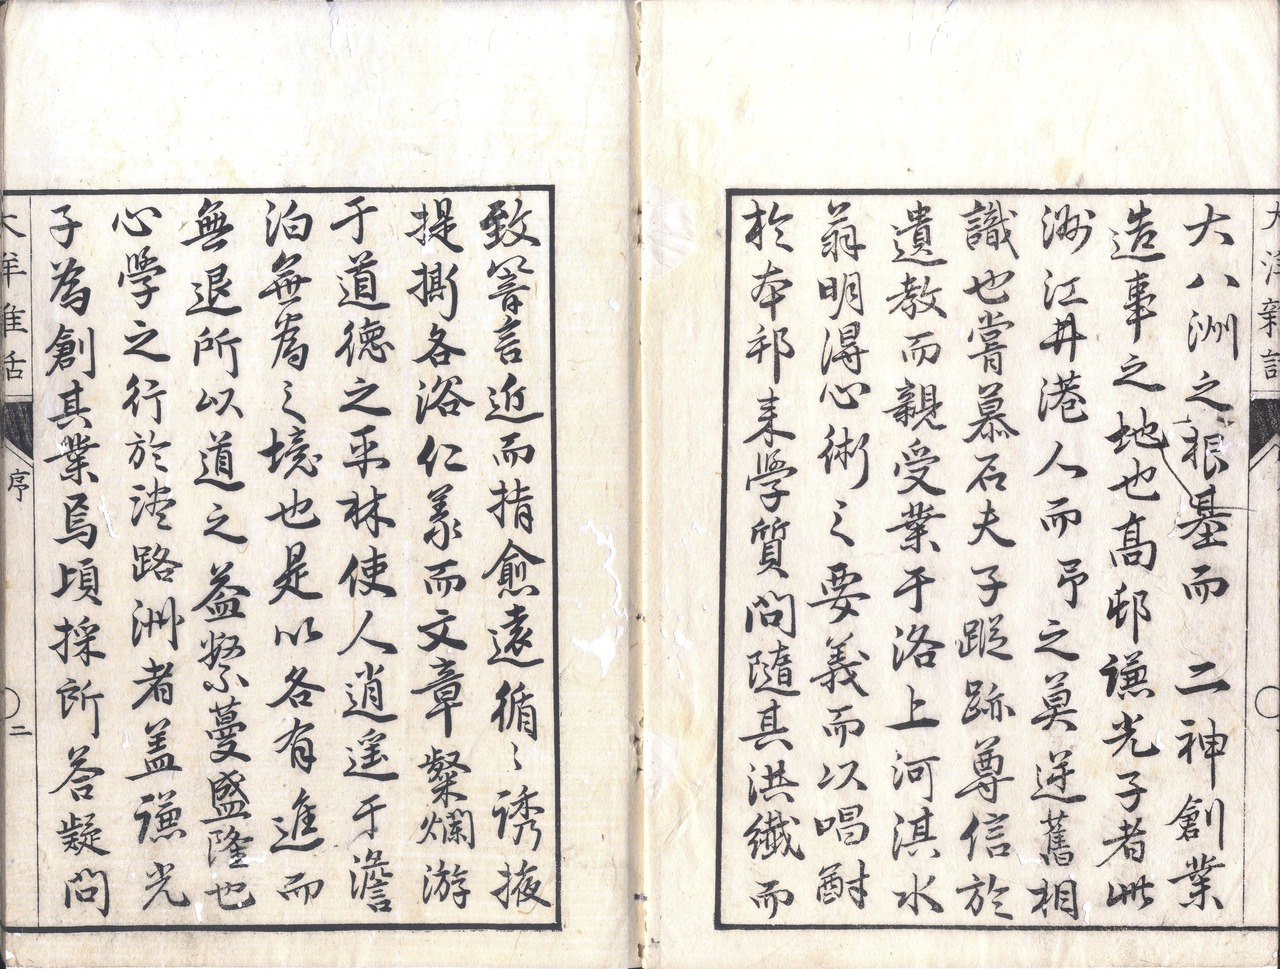 大八洲之根基而　二神創業
造事之地也髙邨謙光子者此
洲江井港人而予之莫逆舊相
識也嘗慕石夫子蹤跡尊信於
遺教而親受業于洛上河淇水
翁明得心術之要義而以唱酬
於本邦来学質問隨其洪纖而
致答言近而指愈遠循〻誘掖
提撕各浴仁義而文章粲爛游
于道德之平林使人逍遥于澹
泊無為之境也是以各有進而
無退所以道之益繁蔓盛隆也
心學之行於淡路洲者盖謙光
子為創其業焉頃採所答疑問
序
二